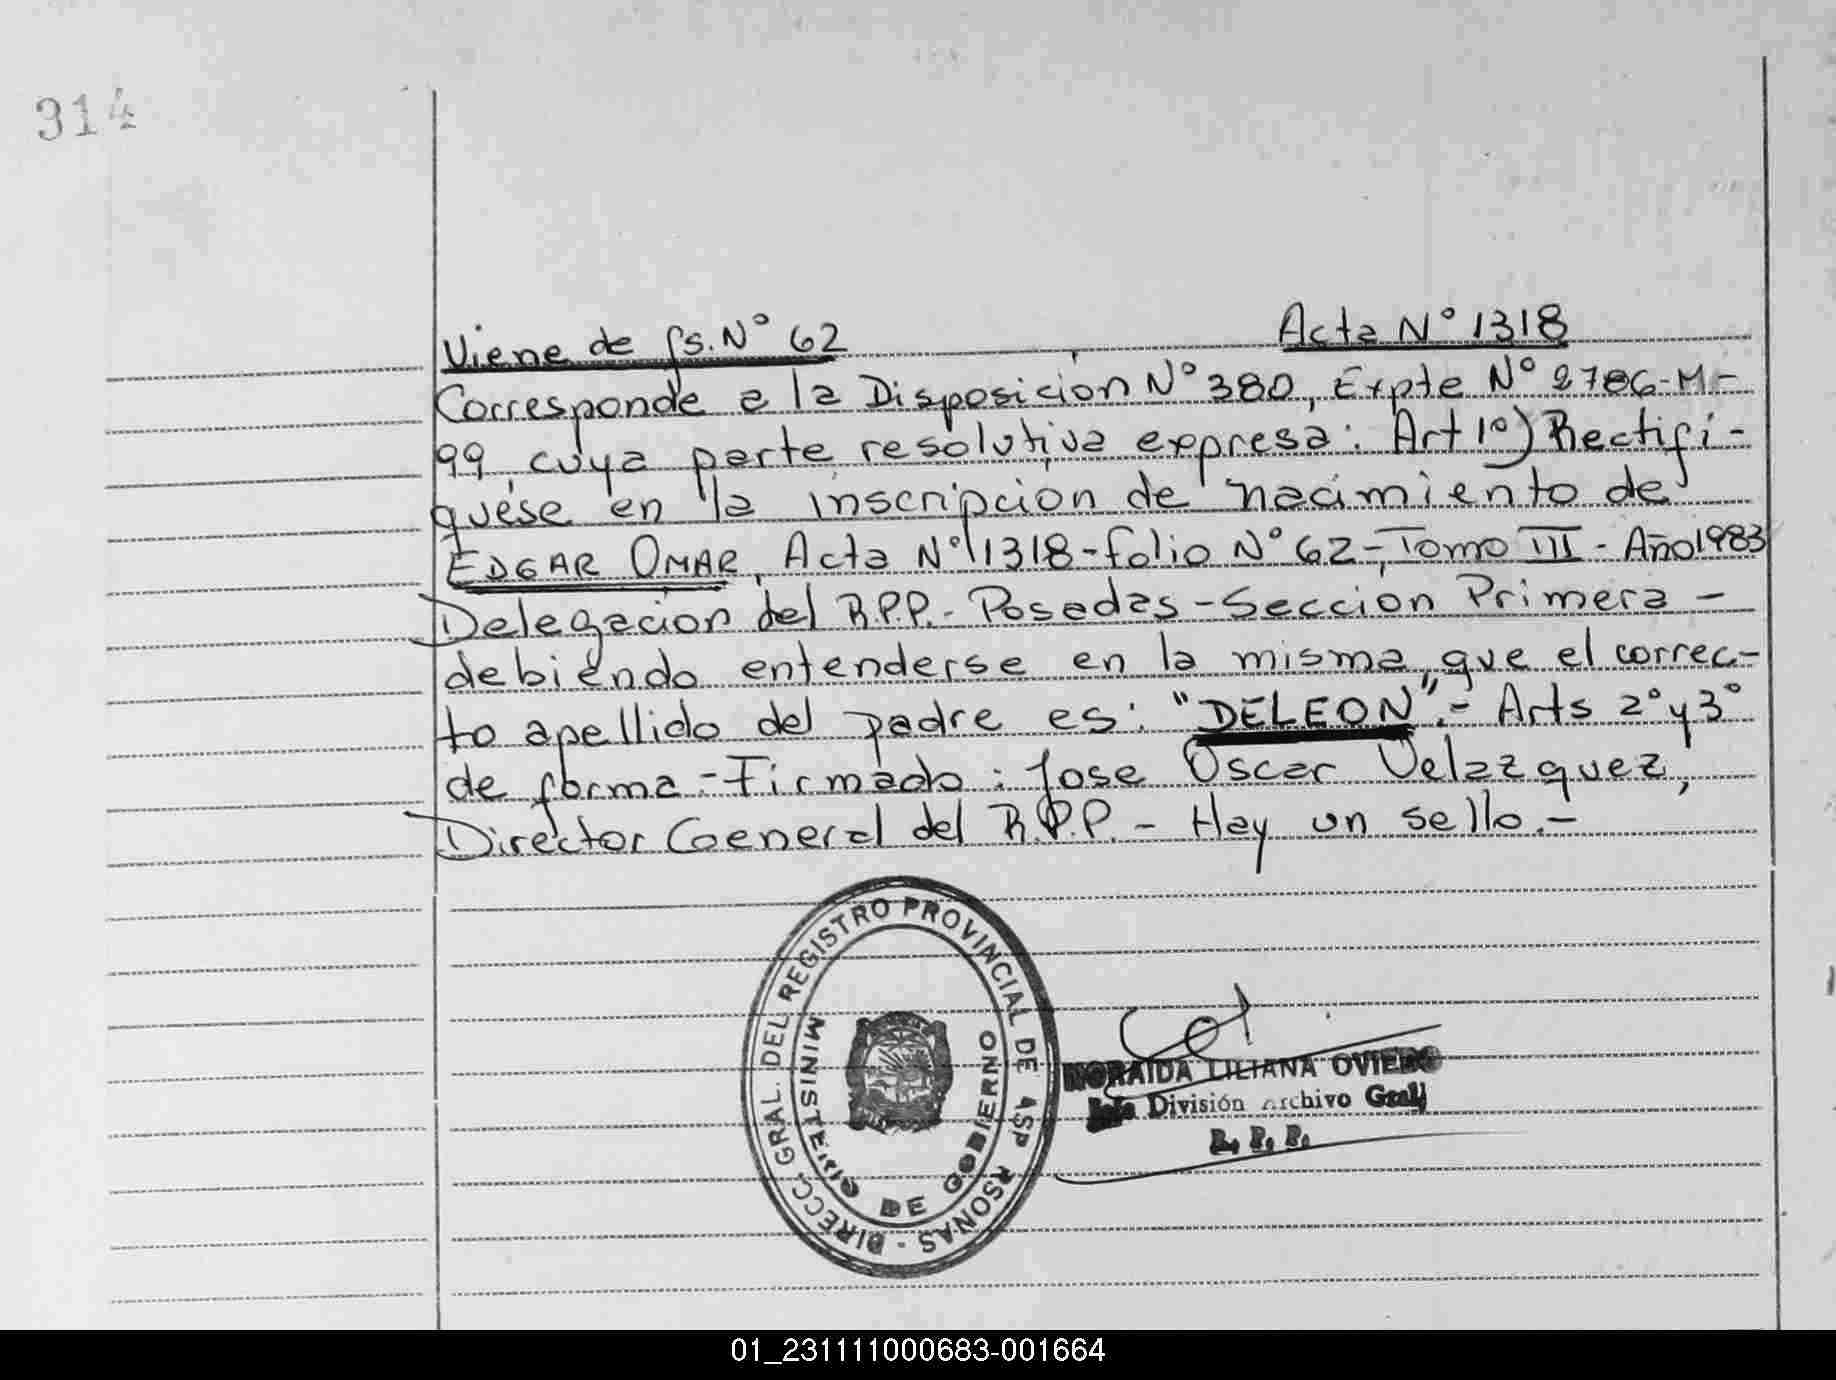 314
Viene de fs. N° 62
Acta N° 1318
Corresponde a la Disposición N° 380, Expte N° 2786-M-
99, cuya parte resolutiva expresa: Art 1°) Rectifí-
quese en la inscripcion de nacimiento de
EDGAR OMAR, Acta N° 1318-folio N° 62-Tomo III - Año 1983
Delegacion del R.P.P.- Posadas-Seccion Primera -
debiendo entenderse en la misma, que el correc-
to apellido del padre es: "DELEON".- Arts 2° y 3°
de forma.-Firmado: Jose Oscar Velazquez,
Director General del R.P.P. - Hay un sello.-
DIRECC. GRAL. DEL REGISTRO PROVINCIAL DE
MINISTERIO DE GOBIERNO
NORAIDA LILIANA OVIEDO
Jefa División Archivo Gral
R. P. P.
01_231111000683-001664